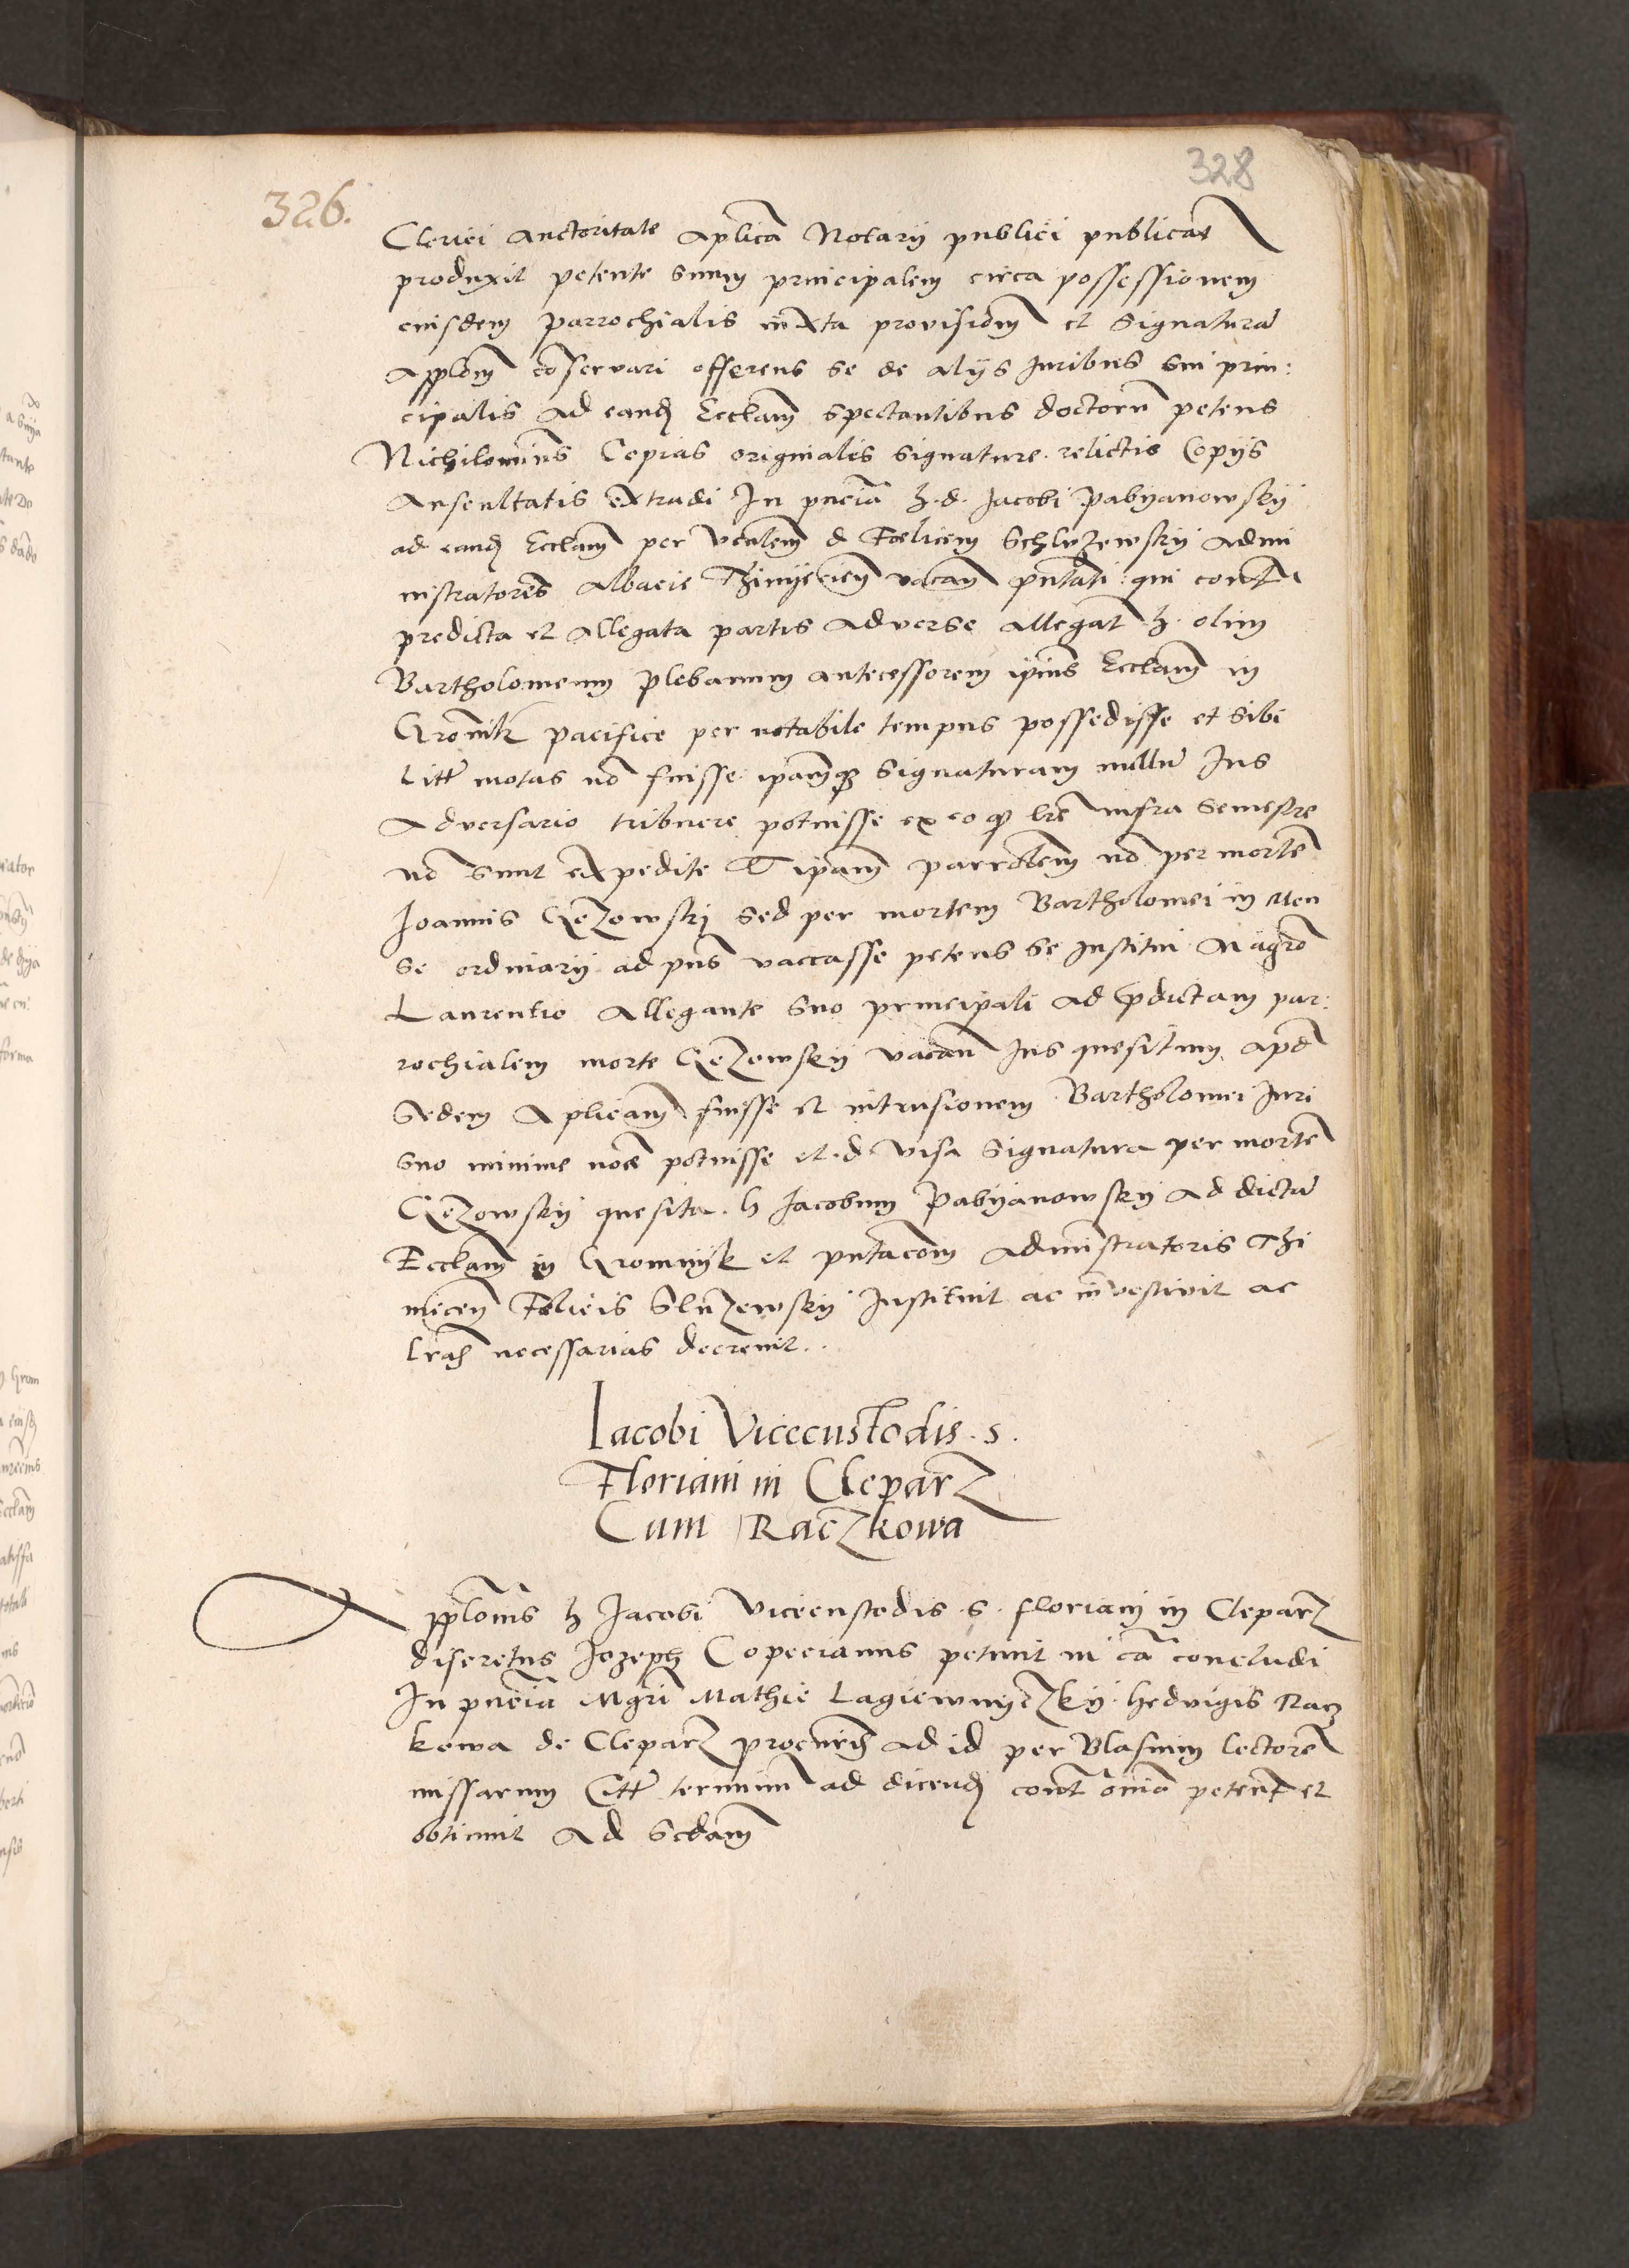 328
326.
Clerici auctoritate aplica Notarij publici publicat
produxit petente suum principalem circa possessionem
eiusdem parrochialis iuxta provisiom et signatura
applcam coservari offerens se de alijs iuribus sui prin:
cipalis ad eand Ecclam spectantibus docturu petens
Nichilominus Copias originalis signature relictis Copijs
Auscultatis extradi In pncia h. d. Jacobi Pabyanowskij
ad eand Ecclam per Vealem d Foelicem Schlvzewskij admi
nistratores Albacie Thinijecien vacan pntati: qui contra
predicta et allegata partis adverse allegat h. olim
Bartholomeum plebanum antecessorem ipius Ecclam in
Gromik pacifice per notabile tempus possedisse et sibi
Litt motas no fuisse ipamq signaturam nullu Ius
Adversario tribuere potuisse ex eo q lre infra semestre
no sunt expedite & ipam parrolem no per morte
Joannis Gezowskij sed per mortem Bartholomei in Men
se ordinarij ad pns vaccasse petens se Institui Magro
Laurentio Allegante suo principali ad pdictam par:
rochialem morte Gezowskij vacan Ius quesitum apd
Sedem Aplicam fuisse et intrusionem Bartholomei Iuri
suo minime noce potuisse et d visa signatura per morte
Gezowskij quesita. h Jacobum Pabyanowskij ad dicta
Ecclam in Gromnijk et pntacom administratoris Thi
niecen Felicis Sluzewskij Instituit ac investivit ac
lras necessarias decrevit..
Iacobi Vicecustodis . s .
Floriani in Cleparz
Cum Raczkowa
Applonis h Jacobi Vicecustodis . s . Floriani in Cleparz
discretus Jozeph Copecianus petiuit in ca concludi
In pncia Mgri Mathie Lagiewnyczkij. Hedvigis Racz
kowa de Cleparz procuris ad id per Blasium lectore
missarum Citt terminu ad dicend cont omia petent et
obtinuit Ad Scdam